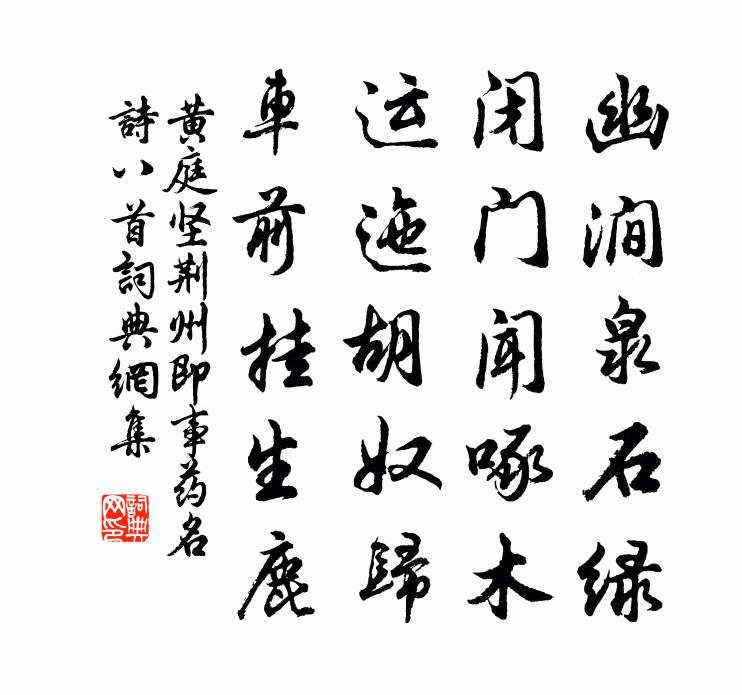 幽涧泉石绿
闭门闻啄木
运迤胡奴歸
車前挂生鹿
黄庭坚荆州即事药名
詩八首詞典網集
詞典
网印